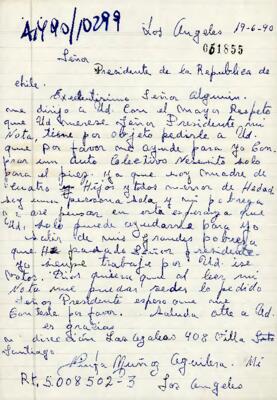 A/490/10299
Los Angeles 19-6-90
061855
Señor
Presidente de la Republica de
chile.
Exelentisimo Señor Alguin.
me dirijo a Ud. Con el mayor Respeto
que Ud merese Señor Presidente mi
Nota, tiene por objeto pedirle a Ud.
que por favor me ayude para yo Con
prar un auto Colectivo Nesesito solo
para el piez, ya que soy madre de
cuatro Hijos y todos menor de Hedad
soy una persona sola y mi pobresa
ase pensar en esta esperansa que
Ud. solo puede ayudarme para yo
salir de mi grandes pobresa
que he pasado Señor presidente
yo sienpre trabaje por Ud. ise
Votos. Dios quiera que al leer mi
Nota me puedas seder lo pedido
Señor Presidente espero que me
Conteste por favor. Saluda atte a Ud.
es gracias
direccion Las Azaleas 408 Villa
Santiago
Muñoz Aguilera. Mi
Rt. 5.008502-3 Los Angeles